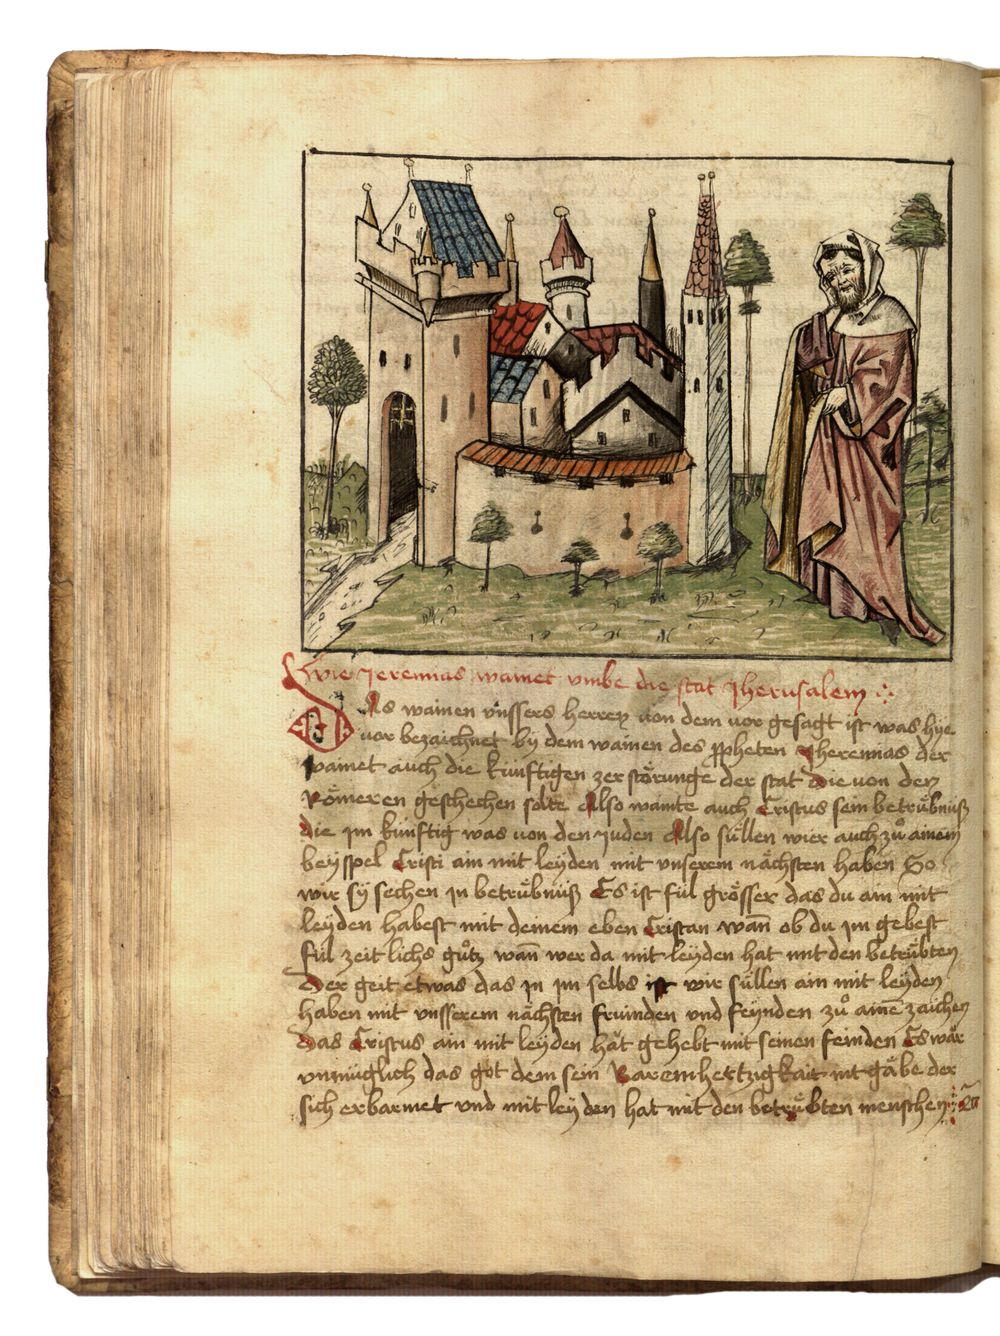 wie Jeremias wainet vmbe die stat Jherusalem
Das wainen vnssers herren von dem vor gesagt ist was hije
vor bezaichnet bij dem wainen des propheten Jheremias der
wainet auch die künftigen zerstörunge der stat die von den
Römeren geschechen solte Also wainte auch Cristus sein betrübnüß
die jm künftig was von den juden Also süllen wier auch zuͦ ainem
beÿspel Cristi ain mit leÿden mit vnserem nächsten haben So
wir sÿ sechen jn betrübnüß Es ist fül grösser das du ain mit
leÿden habest mit deinem eben Cristan wan̄ ob du jm gebest
fül zeitlichs guͦtz wan̄ wer da mit leÿden hat mit den betrübten
Der geit etwas das jn jm selbs ist wir süllen ain mit leÿden
haben mit vnsserem nächsten frúinden vnd feÿnden zuͦ aine zaichen
das Cristus ain mit leÿden hät gehebt mit seinen feinden Es wär
vnmüglich das got dem sein Baremhertzigkait nit gäbe der
sich erbarmet vnd mit leÿden hat mit den betrübten menschen